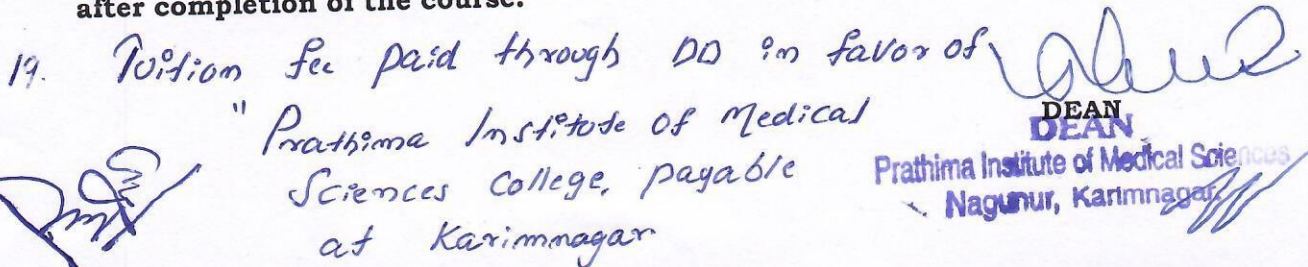 after completion of the course.
19. Tuition fee paid through DD in favor of
" Prathima Institute of Medical
Sciences College, payable
at Karimnagar
DEAN
DEAN
Prathima Institute of Medical Sciences
Nagunur, Karimnagar.